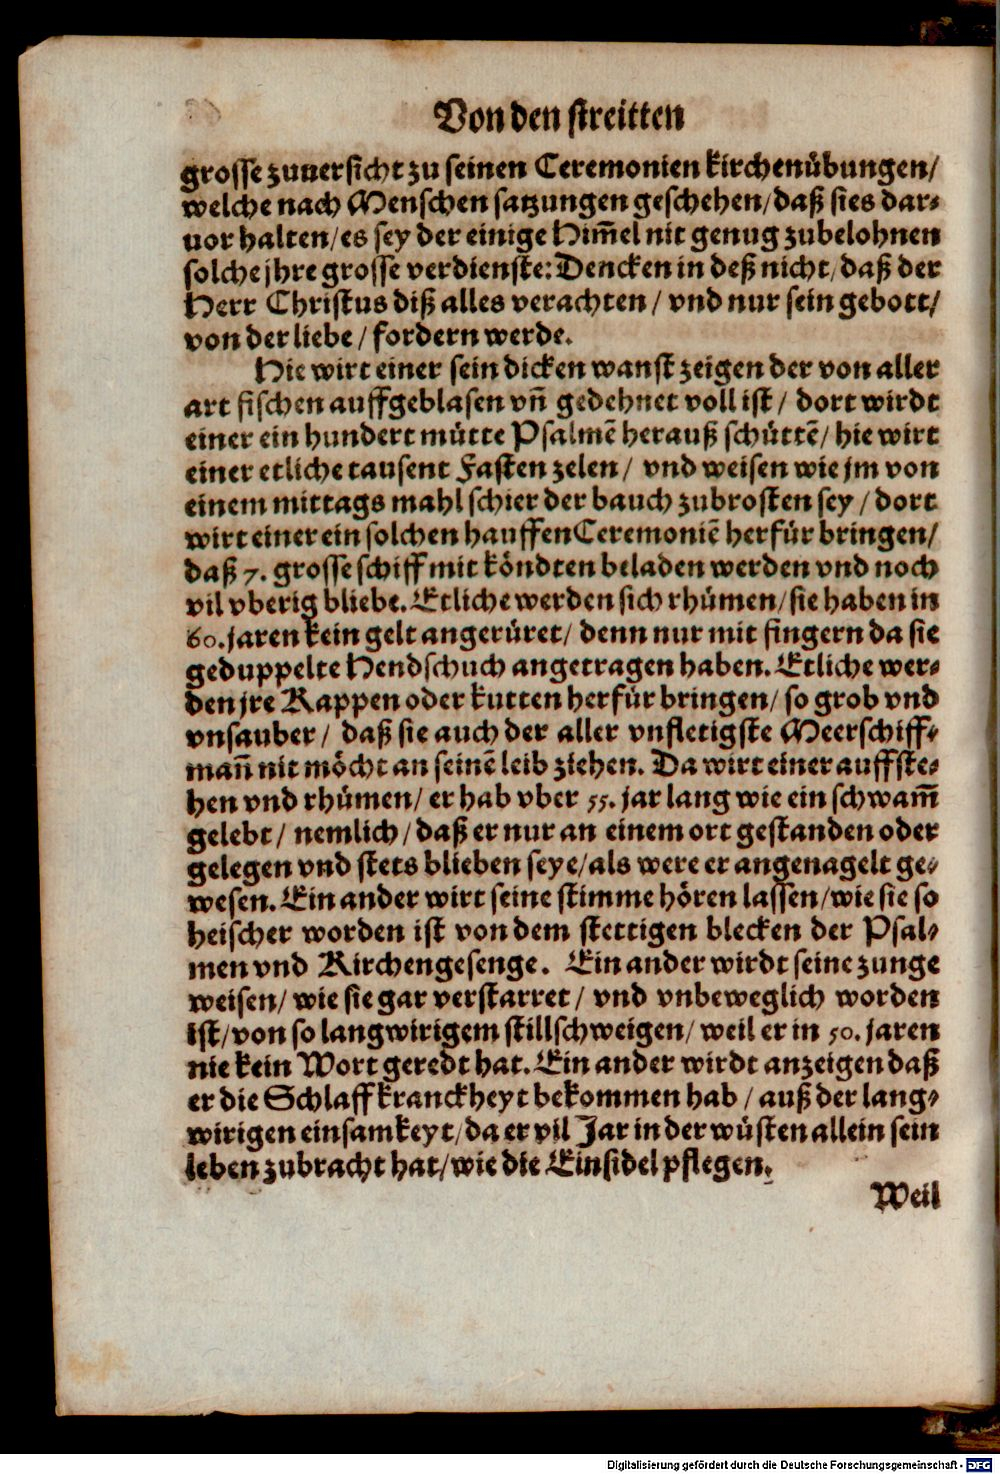 Von den streitten
grosse zuuersicht zu seinen Ceremonien kirchenübungen/
welche nach Menschen satzungen geschehen/ daß sies dar-
uor halten/ es sey der einige Him̄el nit genug zubelohnen
solche jhre grosse verdienste: Dencken in deß nicht/ daß der
Herr Christus diß alles verachten / vnd nur sein gebott/
von der liebe / fordern werde.
Hie wirt einer sein dicken wanst zeigen der von aller
art fischen auffgeblasen vn̄ gedehnet voll ist / dort wirdt
einer ein hundert mütte Psalmē herauß schüttē/ hie wirt
einer etliche tausent Fasten zelen / vnd weisen wie jm von
einem mittags mahl schier der bauch zubrosten sey / dort
wirt einer ein solchen hauffen Ceremoniē herfür bringen/
daß 7. grosse schiff mit köndten beladen werden vnd noch
vil vberig bliebe. Etliche werden sich rhümen/ sie haben in
60. jaren kein gelt angerüret/ denn nur mit fingern da sie
geduppelte Hendschuch angetragen haben. Etliche wer-
den jre Kappen oder kutten herfür bringen/ so grob vnd
vnsauber / daß sie auch der aller vnfletigste Meerschiff-
man̄ nit möcht an seinē leib ziehen. Da wirt einer auffste-
hen vnd rhümen/ er hab vber 55. jar lang wie ein schwam̄
gelebt / nemlich / daß er nur an einem ort gestanden oder
gelegen vnd stets blieben seye/ als were er angenagelt ge-
wesen. Ein ander wirt seine stimme hören lassen/ wie sie so
heischer worden ist von dem stettigen blecken der Psal-
men vnd Kirchengesenge. Ein ander wirdt seine zunge
weisen/ wie sie gar verstarret / vnd vnbeweglich worden
ist/ von so langwirigem stillschweigen/ weil er in 50. jaren
nie kein Wort geredt hat. Ein ander wirdt anzeigen daß
er die Schlaffkranckheyt bekommen hab / auß der lang-
wirigen einsamkeyt/ da er vil Jar in der wüsten allein sein
leben zubracht hat/ wie die Einsidel pflegen.
Weil
Digitalisierung gefördert durch die Deutsche Forschungsgemeinschaft - DFG